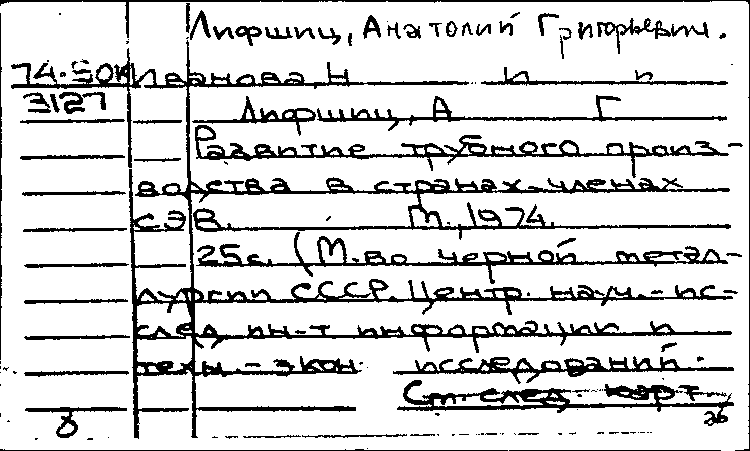 Лифшиц, Анатолий Григорьевич.
74-50К Иванова, Н П и
3127 Лифшиц, А Г
Развитие трубного произ-
водства в странах-членах
СЭВ. М., 1974.
25с. (М-во черной метал-
лургии СССР. Центр. науч.-ис-
след. ин-т информации и
техн.-экон. исследований.
См. след. карт
8 26